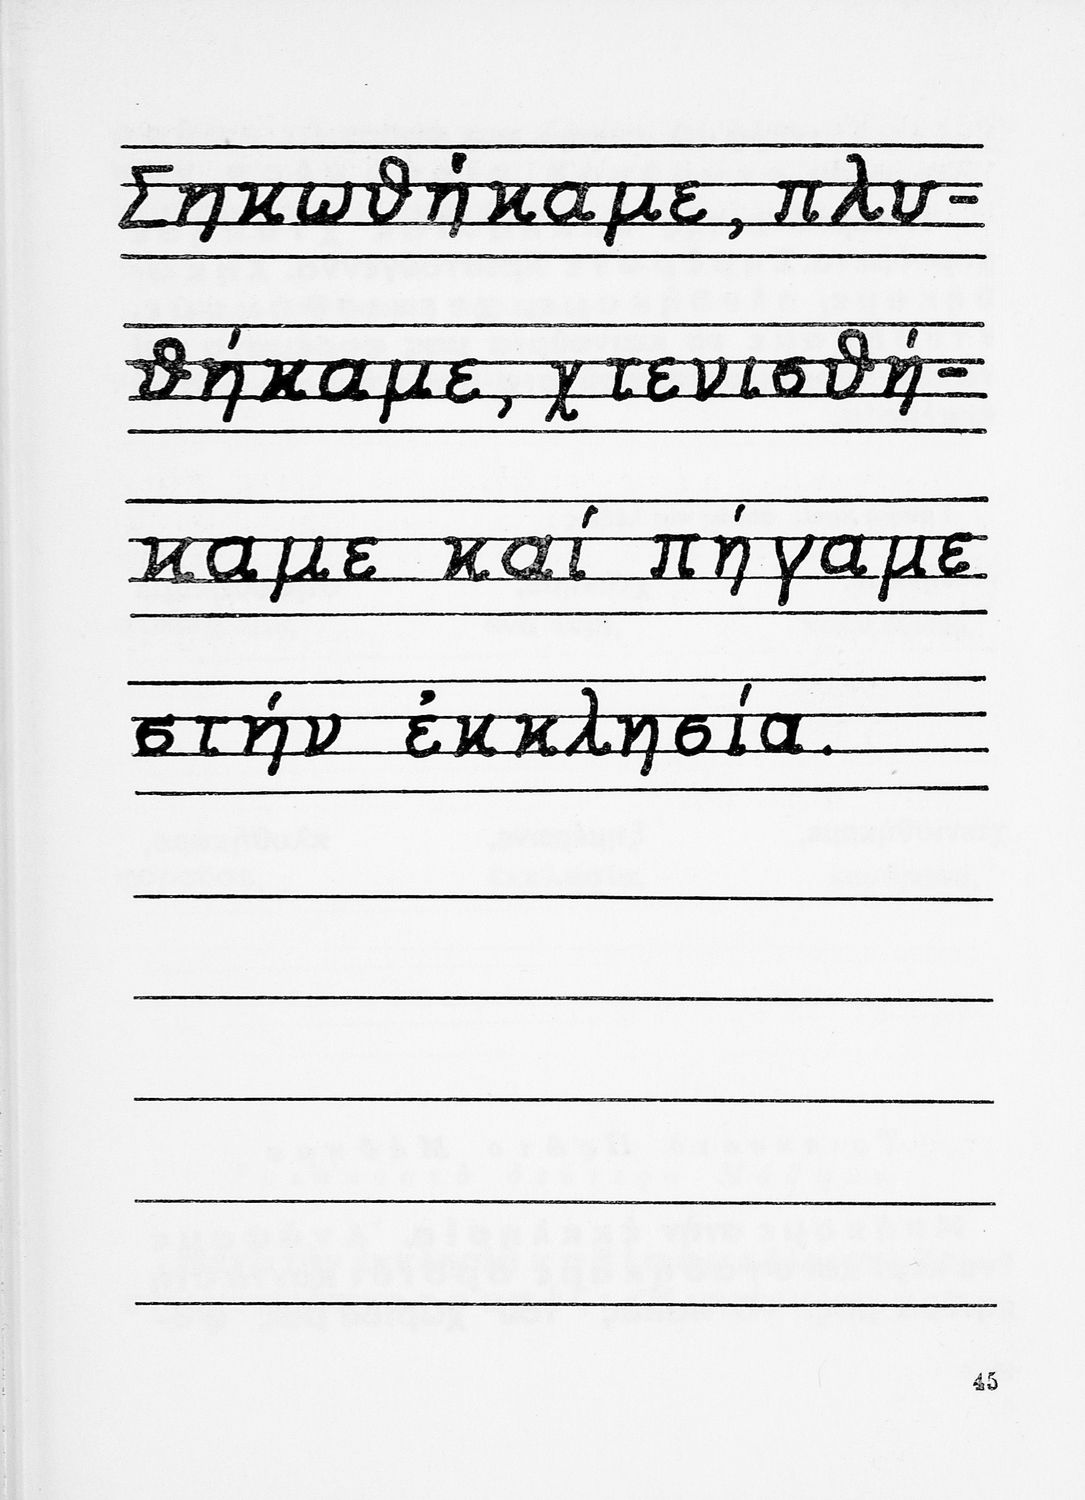 Σηκωθήκαμε, πλυ=
θήκαμε, χτενισθή=
καμε καί πήγαμε
στήν ἐκκλησία.
45